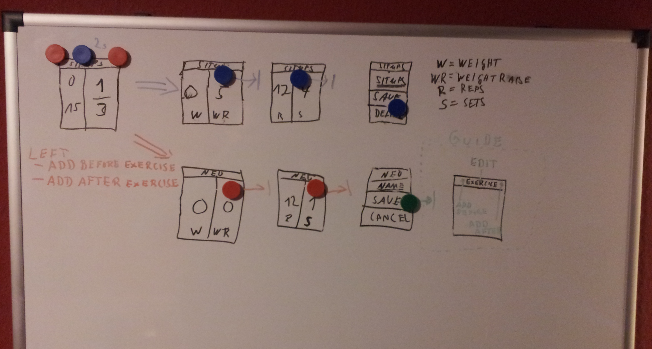 2s
SITUPS
0
1
15
3
SITUPS
0 5
W WR
SITUPS
12 4
R S
SITUPS
SITUPS
SAVE
W = WEIGHT
WR = WEIGHT RANGE
R = REPS
S = SETS
LEFT
- ADD BEFORE EXERCISE
- ADD AFTER EXERCISE
NEW
0 0
W WR
NEW
12 1
R S
NEW
NAME
SAVE
CANCEL
GUIDE
EDIT
EXERCISE